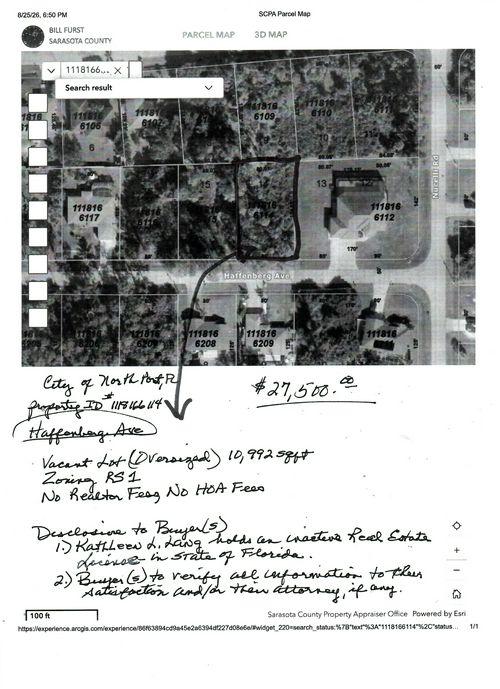 8/25/26, 6:50 PM
SCPA Parcel Map
BILL FURST
SARASOTA COUNTY
PARCEL MAP
3D MAP
1118166... ×
Search result
111816
6105
6
111816
6109
111816
6110
15
13
12
111816
6117
111816
6116
111816
6114
111816
6112
170'
Nuzelli Rd
Haffenberg Ave
111816
6208
111816
6209
111816
City of North Port, FL
property ID # 1118166114
Haffenberg Ave
$27,500.00
Vacant Lot (Oversized) 10,992 sqft
Zoning RS1
No Realtor Fees No HOA Fees
Disclosure to Buyer(s)
1.) Kathleen L. Lang holds an inactive Real Estate
License in State of Florida.
2.) Buyer(s) to verify all information to their
satisfaction and/or their attorney, if any.
100 ft
Sarasota County Property Appraiser Office Powered by Esri
https://experience.arcgis.com/experience/86f63894cd9a45e2a6394df227d08e6e/#widget_220=search_status:%7B"text"%3A"1118166114"%2C"status...
1/1